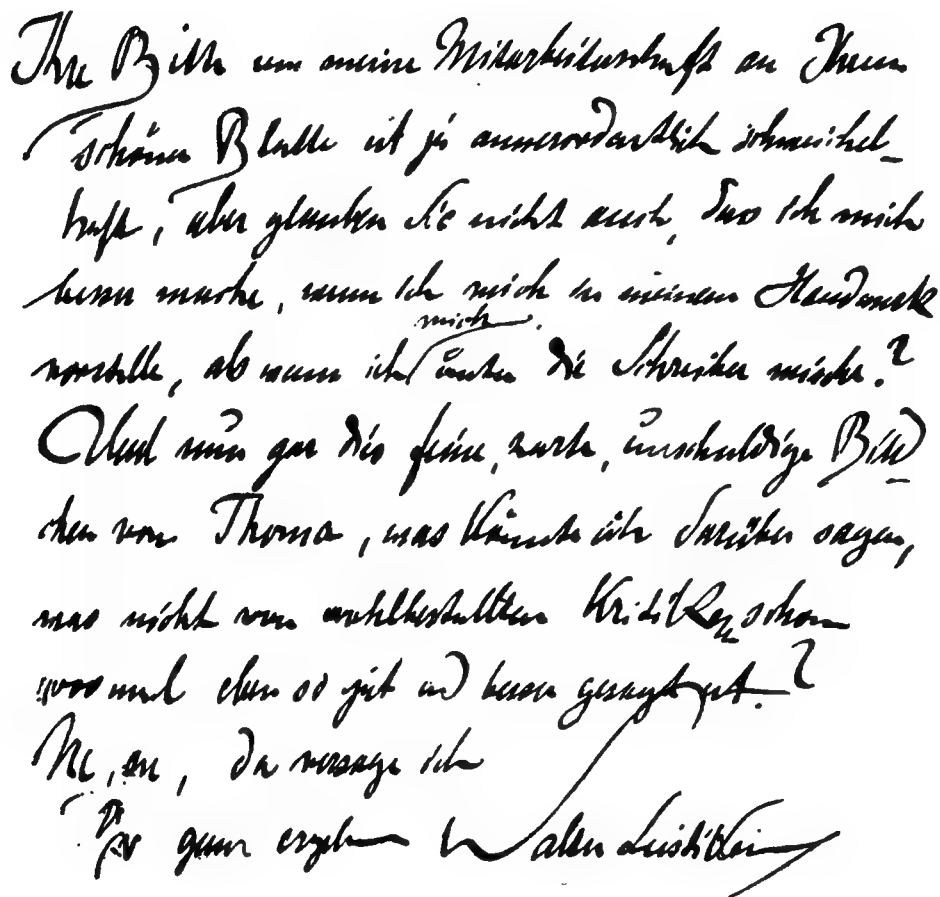 Ihre Bitte um meine Mitarbeiterschaft an Ihrem
schönen Blatte ist ja ausserordentlich schmeichel-
haft, aber glauben Sie nicht auch, dass ich mich
besser mache, wenn ich mich in meinem Handwerk
vorstelle, als wenn ich mich unter die Schreiber mische?
Und nun gar dies feine, zarte, unschuldige Bild-
chen von Thoma, was könnte ich darüber sagen,
was nicht von wohlbestallten Kritikern schon
1000 mal eben so gut und besser gesagt ist?
Ne, ne, da versage ich
Ihr ganz ergeben Walter Leistikow